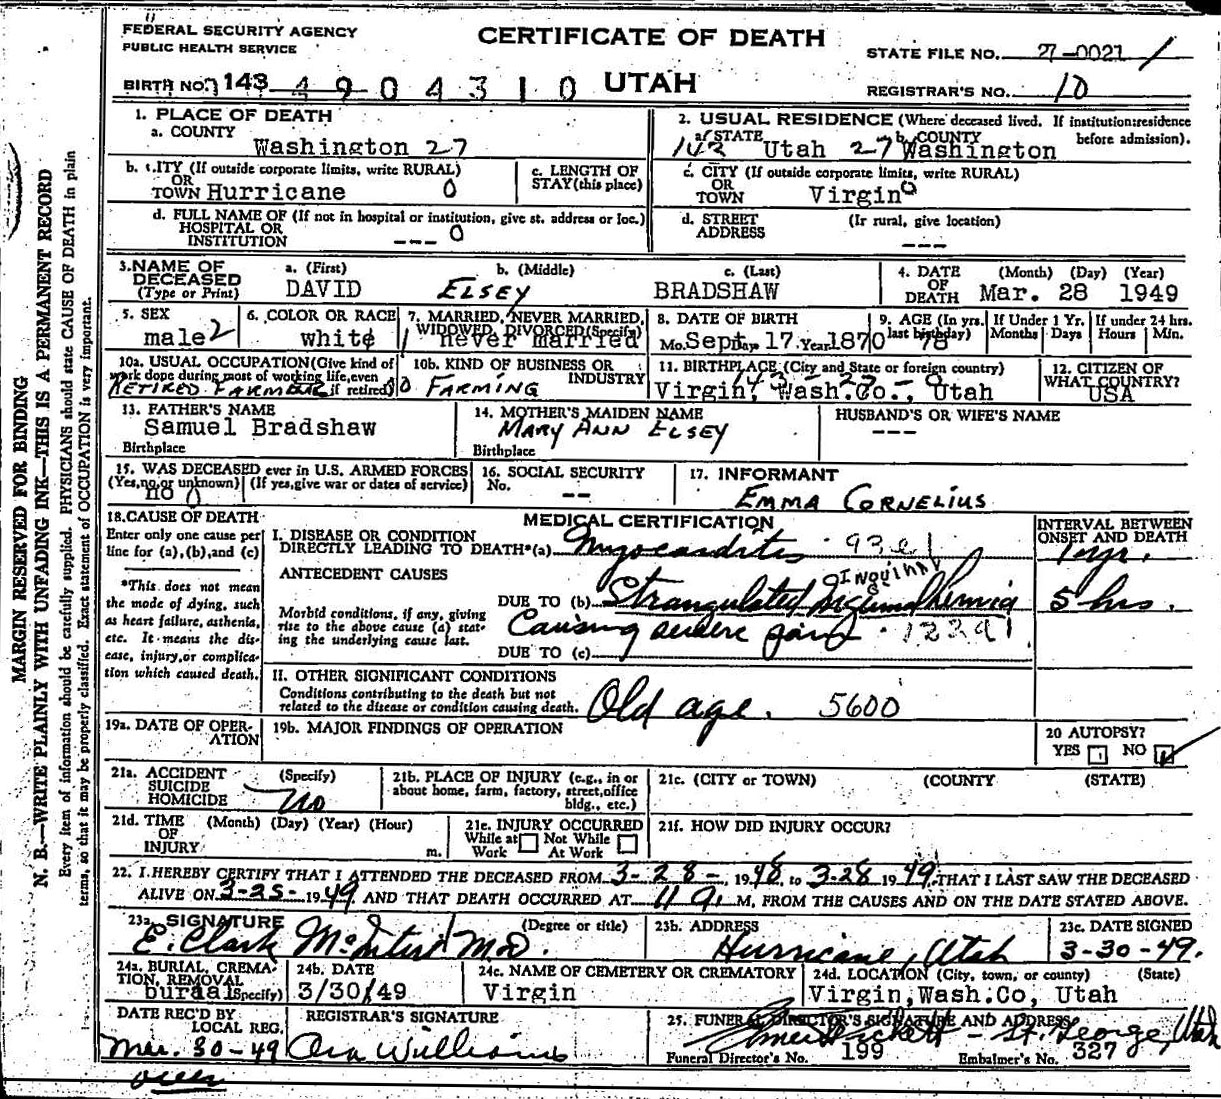 FEDERAL SECURITY AGENCY
PUBLIC HEALTH SERVICE
CERTIFICATE OF DEATH
STATE FILE NO. 27-0021
BIRTH NO. 143 4904310 UTAH
REGISTRAR'S NO. 10
1. PLACE OF DEATH
a. COUNTY
Washington 27
2. USUAL RESIDENCE (Where deceased lived. If institution:residence before admission).
a. STATE b. COUNTY
143 Utah 27 Washington
b. CITY (If outside corporate limits, write RURAL)
OR
TOWN Hurricane 0
c. LENGTH OF
STAY(this place)
c. CITY (If outside corporate limits, write RURAL)
OR
TOWN Virgin 0
d. FULL NAME OF (If not in hospital or institution, give st. address or loc.)
HOSPITAL OR
INSTITUTION --- 0
d. STREET (If rural, give location)
ADDRESS ---
3. NAME OF DECEASED
(Type or Print)
a. (First) b. (Middle) c. (Last)
DAVID ELSEY BRADSHAW
4. DATE OF DEATH (Month) (Day) (Year)
Mar. 28 1949
5. SEX
male 2
6. COLOR OR RACE
white
7. MARRIED, NEVER MARRIED,
WIDOWED, DIVORCED(Specify)
1 never married
8. DATE OF BIRTH
Mo. Sept Day 17 Year 1870
9. AGE (In yrs. last birthday)
78
If Under 1 Yr. Months Days
If under 24 hrs. Hours Min.
10a. USUAL OCCUPATION(Give kind of
work done during most of working life,even
if retired)
RETIRED FARMER
10b. KIND OF BUSINESS OR
INDUSTRY
FARMING
11. BIRTHPLACE (City and State or foreign country)
143 - 27 - 0
Virgin, Wash.Co., Utah
12. CITIZEN OF
WHAT COUNTRY?
USA
13. FATHER'S NAME
Samuel Bradshaw
Birthplace
14. MOTHER'S MAIDEN NAME
MARY ANN ELSEY
Birthplace
HUSBAND'S OR WIFE'S NAME
---
15. WAS DECEASED ever in U.S. ARMED FORCES
(Yes,no,or unknown) (If yes,give war or dates of service)
no 0
16. SOCIAL SECURITY
No. --
17. INFORMANT
EMMA CORNELIUS
18. CAUSE OF DEATH
Enter only one cause per
line for (a),(b),and (c)
*This does not mean
the mode of dying, such
as heart failure, asthenia,
etc. It means the dis-
ease, injury,or complica-
tion which caused death.
MEDICAL CERTIFICATION
INTERVAL BETWEEN
ONSET AND DEATH
I. DISEASE OR CONDITION
DIRECTLY LEADING TO DEATH*(a) Myocarditis 93e1 1 yr.
ANTECEDENT CAUSES
INQUINAL
DUE TO (b) Strangulated Hernia 5 hrs.
Morbid conditions, if any, giving
rise to the above cause (a) stat-
ing the underlying cause last.
Causing severe pain
DUE TO (c)
II. OTHER SIGNIFICANT CONDITIONS
Conditions contributing to the death but not
related to the disease or condition causing death.
Old age. 5600
19a. DATE OF OPER-
ATION
19b. MAJOR FINDINGS OF OPERATION
20 AUTOPSY?
YES NO
21a. ACCIDENT (Specify)
SUICIDE
HOMICIDE
No
21b. PLACE OF INJURY (e.g., in or
about home, farm, factory, street,office
bldg., etc.)
21c. (CITY or TOWN) (COUNTY) (STATE)
21d. TIME (Month) (Day) (Year) (Hour)
OF
INJURY m.
21e. INJURY OCCURRED
While at Work Not While At Work
21f. HOW DID INJURY OCCUR?
22. I HEREBY CERTIFY THAT I ATTENDED THE DECEASED FROM 3-28-, 1948, to 3-28 1949, THAT I LAST SAW THE DECEASED
ALIVE ON 3-25- 1949 AND THAT DEATH OCCURRED AT 11 a. M, FROM THE CAUSES AND ON THE DATE STATED ABOVE.
23a. SIGNATURE (Degree or title)
E. Clark McIntire M.D.
23b. ADDRESS
Hurricane, Utah
23c. DATE SIGNED
3-30-49.
24a. BURIAL, CREMA-
TION, REMOVAL
(Specify)
buraal
24b. DATE
3/30/49
24c. NAME OF CEMETERY OR CREMATORY
Virgin
24d. LOCATION (City, town, or county) (State)
Virgin,Wash.Co, Utah
DATE REC'D BY
LOCAL REG.
Mar. 30-49
REGISTRAR'S SIGNATURE
Ora Williams
25. FUNERAL DIRECTOR'S SIGNATURE AND ADDRESS
Pickett - St. George, Utah
Funeral Director's No. 199 Embalmer's No. 327
over
MARGIN RESERVED FOR BINDING
N. B.—WRITE PLAINLY WITH UNFADING INK—THIS IS A PERMANENT RECORD
Every item of information should be carefully supplied. PHYSICIANS should state CAUSE OF DEATH in plain
terms, so that it may be properly classified. Exact statement of OCCUPATION is very important.